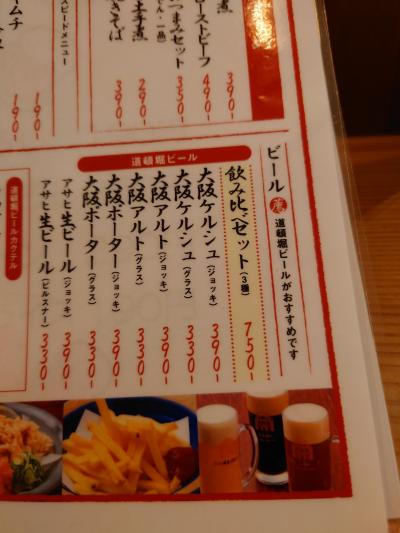 ローストビーフ
390-
490-
つまみセット
350-
290-
390-
スピードメニュー
190-
190-
ビール
道頓堀ビールがおすすめです
道頓堀ビール
飲み比べセット(3種) 750-
大阪ケルシュ(ジョッキ) 390-
大阪ケルシュ(グラス) 330-
大阪アルト(ジョッキ) 390-
大阪アルト(グラス) 330-
大阪ポーター(ジョッキ) 390-
大阪ポーター(グラス) 330-
アサヒ生ビール(ジョッキ) 390-
アサヒ生ビール(ピルスナー) 330-
道頓堀ビールカクテル